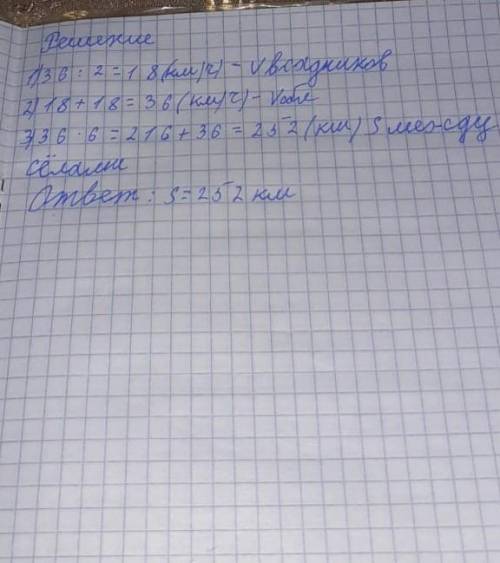 Решение
1) 36 : 2 = 18 (км/ч) - V всадников
2) 18 + 18 = 36 (км/ч) - Vсбл
3) 36 · 6 = 216 + 36 = 252 (км) S между
сёлами
Ответ: S = 252 км